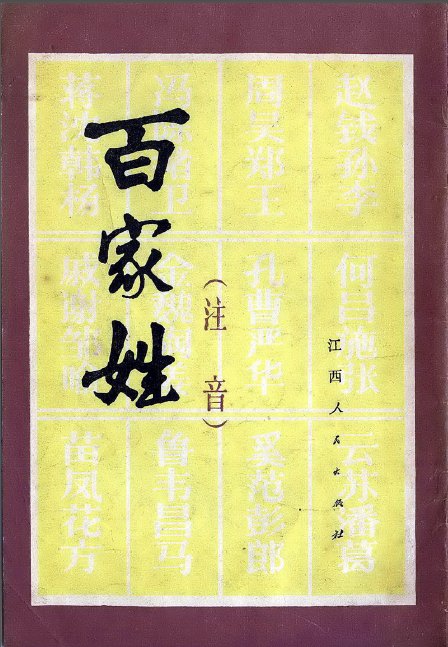 百家姓
(注音)
江西人民出版社
赵钱孙李
周吴郑王
冯陈褚卫
蒋沈韩杨
何吕施张
孔曹严华
金魏陶姜
戚谢邹喻
云苏潘葛
奚范彭郎
鲁韦昌马
苗凤花方